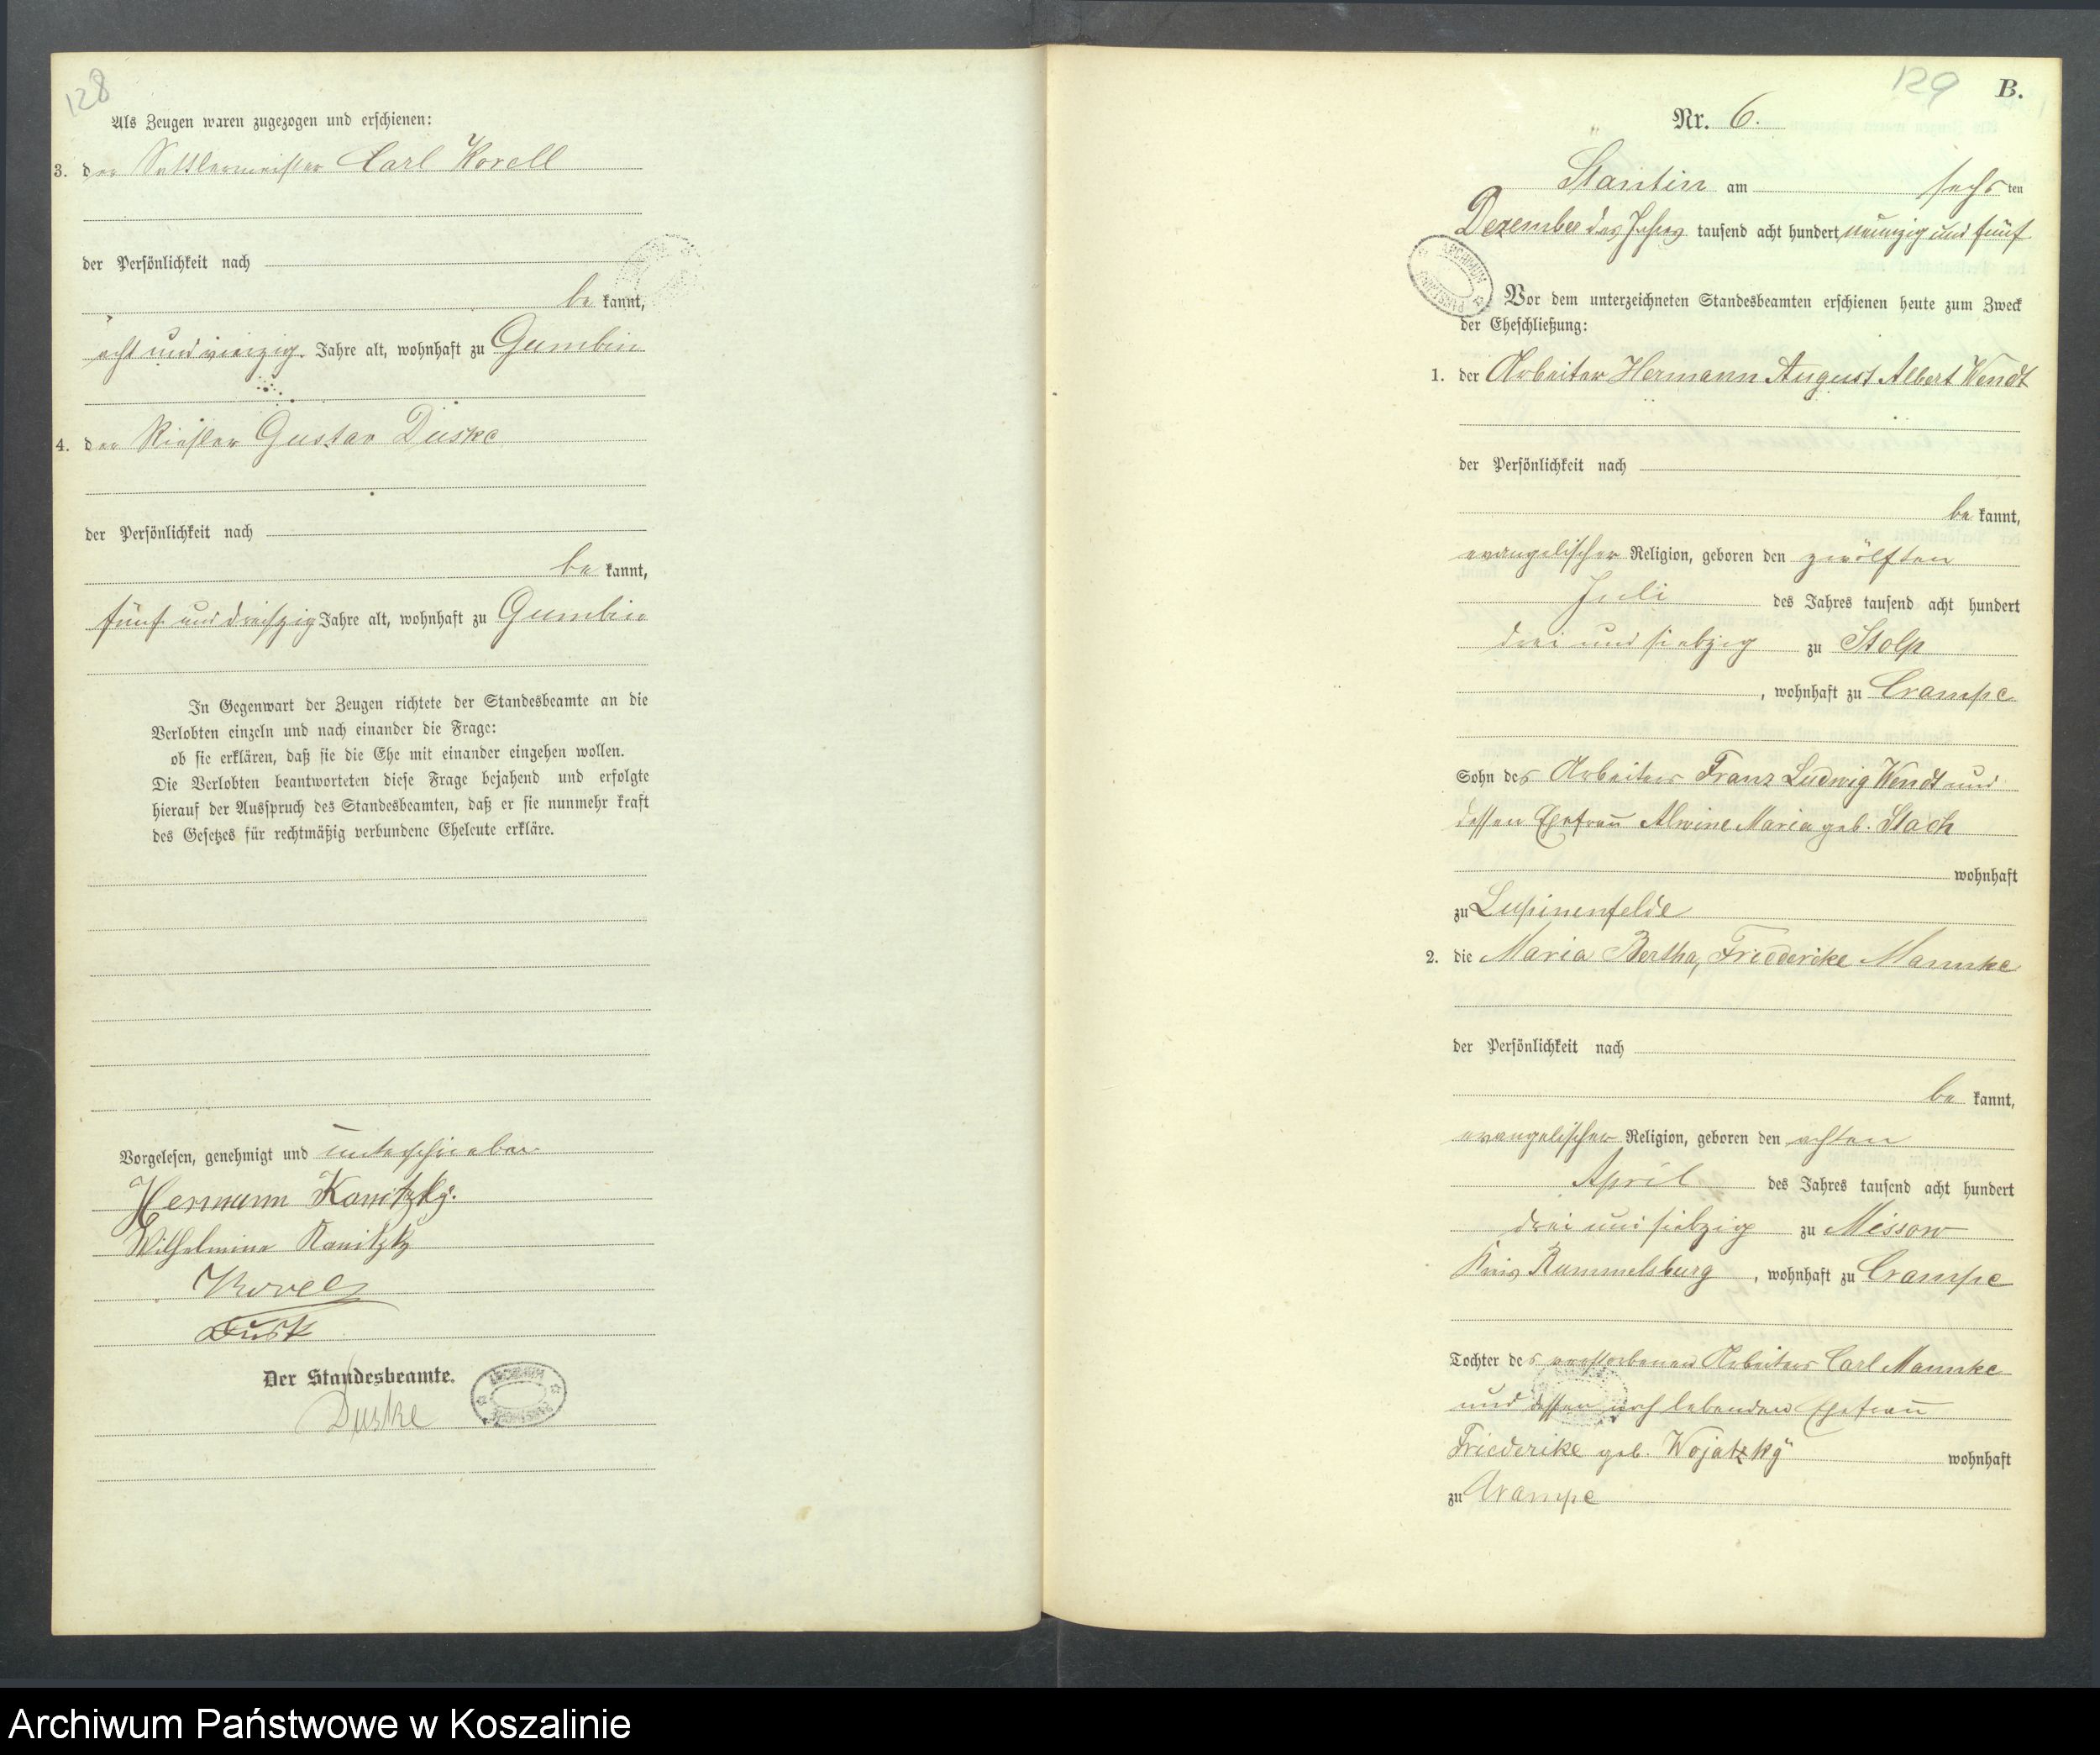 128
Als Zeugen waren zugezogen und erschienen:
3. der Sattlermeister Carl Korell
der Persönlichkeit nach
be kannt,
acht und vierzig Jahre alt, wohnhaft zu Gumbin
4. der Gustav Duske
der Persönlichkeit nach
be kannt,
fünf und dreißig Jahre alt, wohnhaft zu Gumbin
In Gegenwart der Zeugen richtete der Standesbeamte an die
Verlobten einzeln und nach einander die Frage:
ob sie erklären, daß sie die Ehe mit einander eingehen wollen.
Die Verlobten beantworteten diese Frage bejahend und erfolgte
hierauf der Ausspruch des Standesbeamten, daß er sie nunmehr kraft
des Gesetzes für rechtmäßig verbundene Eheleute erkläre.
Vorgelesen, genehmigt und unterschrieben
Hermann Kanitzky.
Wilhelmine Kanitzky
Korell
Dusk
Der Standesbeamte.
Duske
129
B.
Nr. 6.
Stantin am sechsten
Dezember des Jahres tausend acht hundert neunzig und fünf
Vor dem unterzeichneten Standesbeamten erschienen heute zum Zweck
der Eheschließung:
1. der Arbeiter Hermann August Albert Wendt
der Persönlichkeit nach
be kannt,
evangelischer Religion, geboren den zwölften
Juli des Jahres tausend acht hundert
drei und siebzig zu Stolp
, wohnhaft zu Crampe
Sohn des Arbeiters Franz Ludwig Wendt und
dessen Ehefrau Alwine Maria geb. Stach
wohnhaft
zu Lupinenfelde
2. die Maria Bertha, Friedericke Mannke
der Persönlichkeit nach
be kannt,
evangelischer Religion, geboren den achten
April des Jahres tausend acht hundert
drei und siebzig zu Missow
Kreis Rummelsburg, wohnhaft zu Crampe
Tochter des verstorbenen Arbeiters Carl Mannke
und dessen noch lebenden Ehefrau
Friederike geb. Wojatzky wohnhaft
zu Crampe
Archiwum Państwowe w Koszalinie